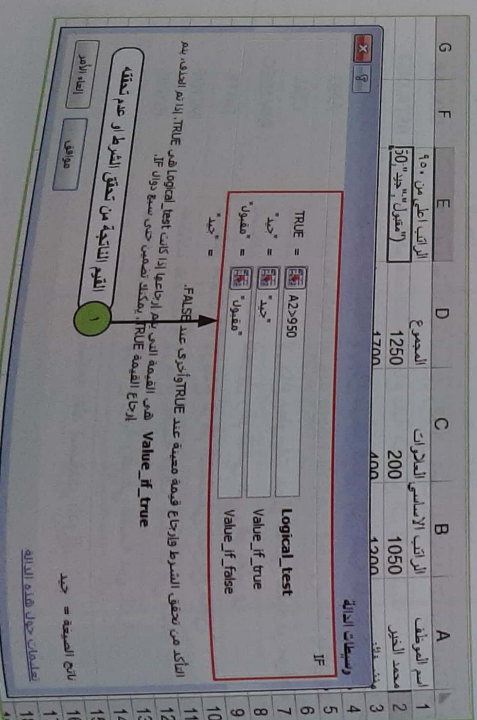 G F E D C B A
1 اسم الموظف الراتب الاساسي العلاوات المجموع الراتب اعلى من ٩٥٠
2 محمد الخير 1050 200 1250 50;"جيد";"مقبول")
3 1200 400 1700
4 وسيطات الدالة
5 IF
6
7 Logical_test A2>950 = TRUE
8 Value_if_true "جيد" = "جيد"
9 Value_if_false "مقبول" = "مقبول"
10 = "جيد"
11 التأكد من تحقق الشرط وإرجاع قيمة معينة عند TRUE وأخرى عند FALSE.
12 Value_if_true هي القيمة التي يتم إرجاعها إذا كانت Logical_test هي TRUE. إذا تم الحذف، يتم
13 إرجاع القيمة TRUE. يمكنك تضمين حتى سبع دوال IF.
14
١
القيم الناتجة من تحقق الشرط او عدم تحققه
15
16 ناتج الصيغة = جيد
17
تعليمات حول هذه الدالة
موافق
إلغاء الأمر